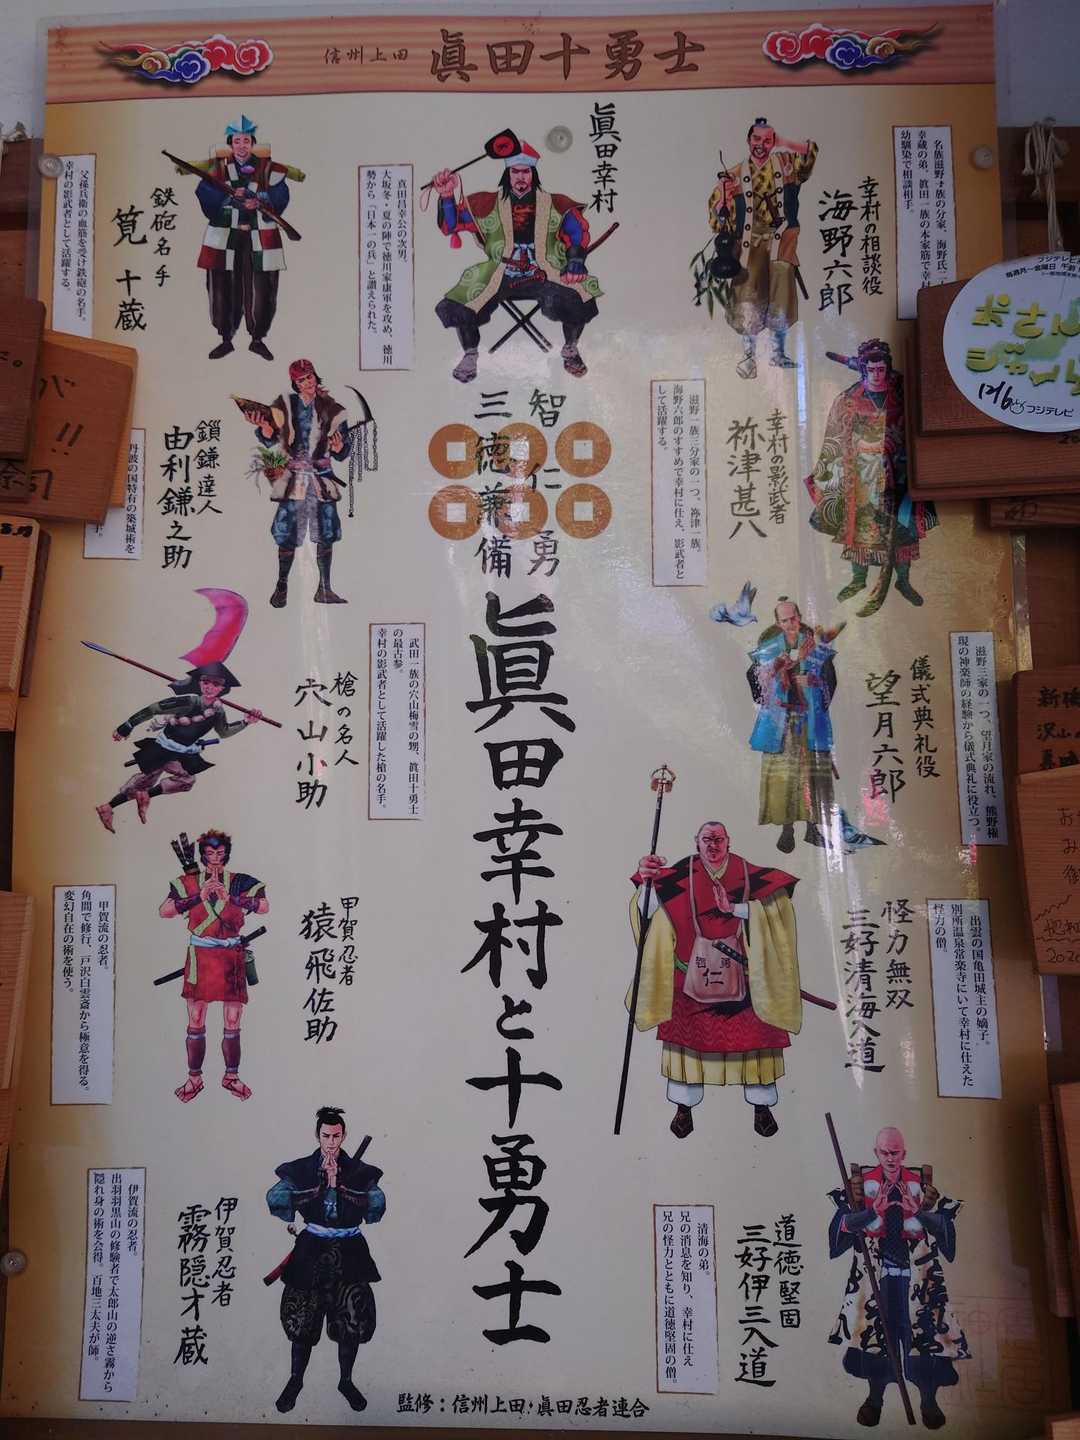 信州上田 眞田十勇士
眞田幸村
真田昌幸公の次男。
大坂冬・夏の陣で徳川家康軍を攻め、徳川
勢から「日本一の兵」と讃えられた。
幸村の相談役
海野六郎
名族滋野一族の分家、海野氏
幸蔵の弟。眞田一族の本家筋で幸村
幼馴染で相談相手。
鉄砲名手
筧十蔵
父孫兵衛の血筋を受け鉄砲の名手。
幸村の影武者として活躍する。
幸村の影武者
祢津甚八
滋野一族三分家の一つ、祢津一族。
海野六郎のすすめで幸村に仕え、影武者と
して活躍する。
鎖鎌達人
由利鎌之助
丹波の国特有の築城術を
手。
智仁勇
三徳兼備
眞田幸村と十勇士
儀式典礼役
望月六郎
滋野三家の一つ、望月家の流れ、熊野権
現の神楽師の経験から儀式典礼に役立つ。
槍の名人
穴山小助
武田一族の穴山梅雪の甥、眞田十勇士
の最古参。
幸村の影武者として活躍した槍の名手。
怪力無双
三好清海入道
出雲の国亀田城主の嫡子。
別所温泉常楽寺にいて幸村に仕えた
怪力の僧。
智勇
仁
甲賀忍者
猿飛佐助
甲賀流の忍者。
角間で修行、戸沢白雲斎から極意を得る。
変幻自在の術を使う。
道徳堅固
三好伊三入道
清海の弟。
兄の消息を知り、幸村に仕え
兄の怪力とともに道徳堅固の僧。
伊賀忍者
霧隠才蔵
伊賀流の忍者。
出羽羽黒山の修験者で太郎山の逆さ霧から
隠れ身の術を会得。百地三太夫が師。
監修：信州上田・眞田忍者連合
フジテレビ
毎週月〜金曜日 午前
ジャ
12/6
フジテレビ
が
!!
2020